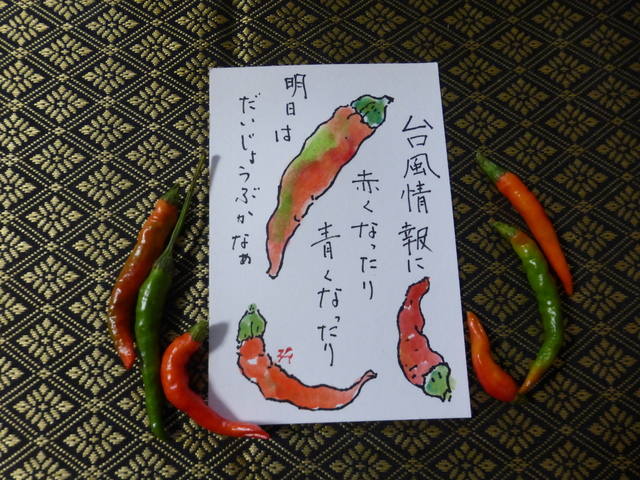 台風情報に
赤くなったり
青くなったり
明日は
だいじょうぶかなぁ